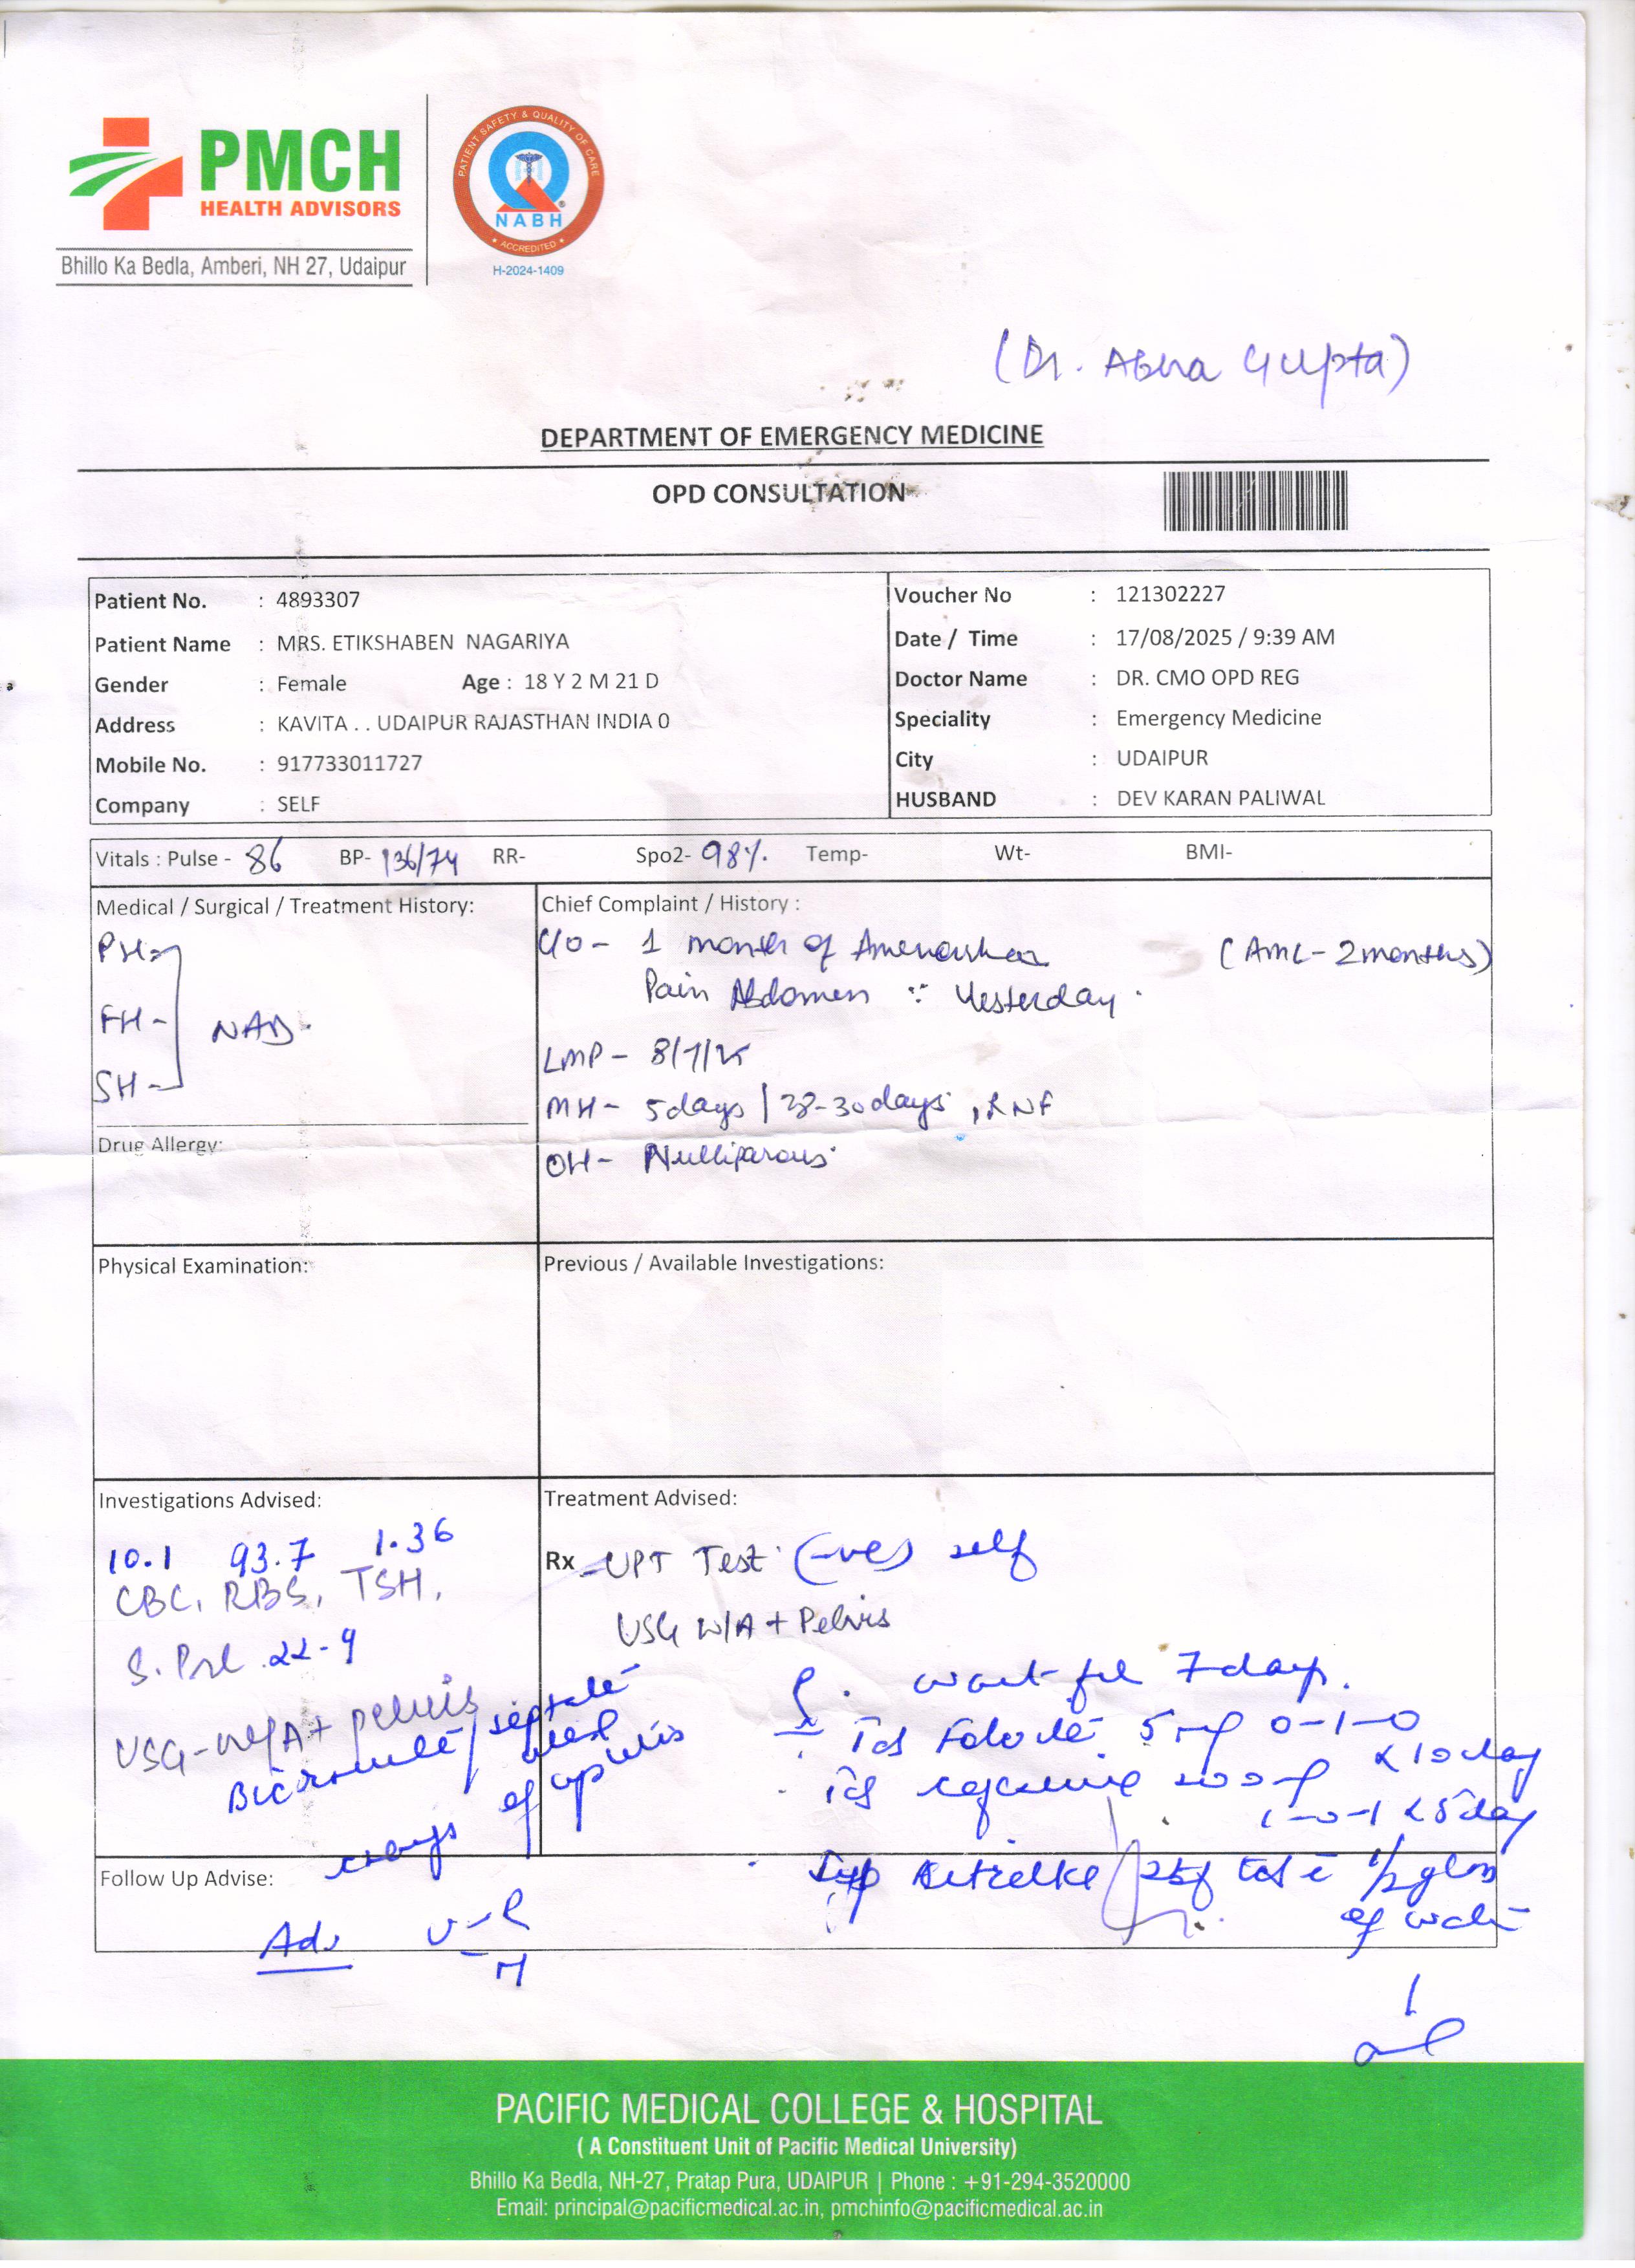 PMCH
HEALTH ADVISORS
Bhillo Ka Bedla, Amberi, NH 27, Udaipur
PATIENT SAFETY & QUALITY OF CARE
NABH
ACCREDITED
H-2024-1409
(Dr. Abha Gupta)
DEPARTMENT OF EMERGENCY MEDICINE
OPD CONSULTATION
Patient No. : 4893307
Patient Name : MRS. ETIKSHABEN NAGARIYA
Gender : Female Age : 18 Y 2 M 21 D
Address : KAVITA . . UDAIPUR RAJASTHAN INDIA 0
Mobile No. : 917733011727
Company : SELF
Voucher No : 121302227
Date / Time : 17/08/2025 / 9:39 AM
Doctor Name : DR. CMO OPD REG
Speciality : Emergency Medicine
City : UDAIPUR
HUSBAND : DEV KARAN PALIWAL
Vitals : Pulse - 86 BP- 136/74 RR- Spo2- 98% Temp- Wt- BMI-
Medical / Surgical / Treatment History:
PH-
FH- NAD.
SH-
Drug Allergy:
Chief Complaint / History :
C/O - 1 month of (AML - 2 months)
Pain Abdomen ∵ Yesterday.
LMP - 8/7/25
MH - 5 days / 28-30 days, RNF
OH - Nulliparous
Physical Examination:
Previous / Available Investigations:
Investigations Advised:
10.1 93.7 1.36
CBC, RBS, TSH,
S. Prl 22-9
USG - W/A + pelvis
septate
of
Treatment Advised:
Rx - UPT Test (-ve) self
USG W/A + Pelvis
wait for 7 days.
5 mg 0-1-0
x 10 day
1-0-1 x 5 day
Syp tds 1/2 glass
of water
Follow Up Advise:
Adv
PACIFIC MEDICAL COLLEGE & HOSPITAL
( A Constituent Unit of Pacific Medical University)
Bhillo Ka Bedla, NH-27, Pratap Pura, UDAIPUR | Phone : +91-294-3520000
Email: principal@pacificmedical.ac.in, pmchinfo@pacificmedical.ac.in